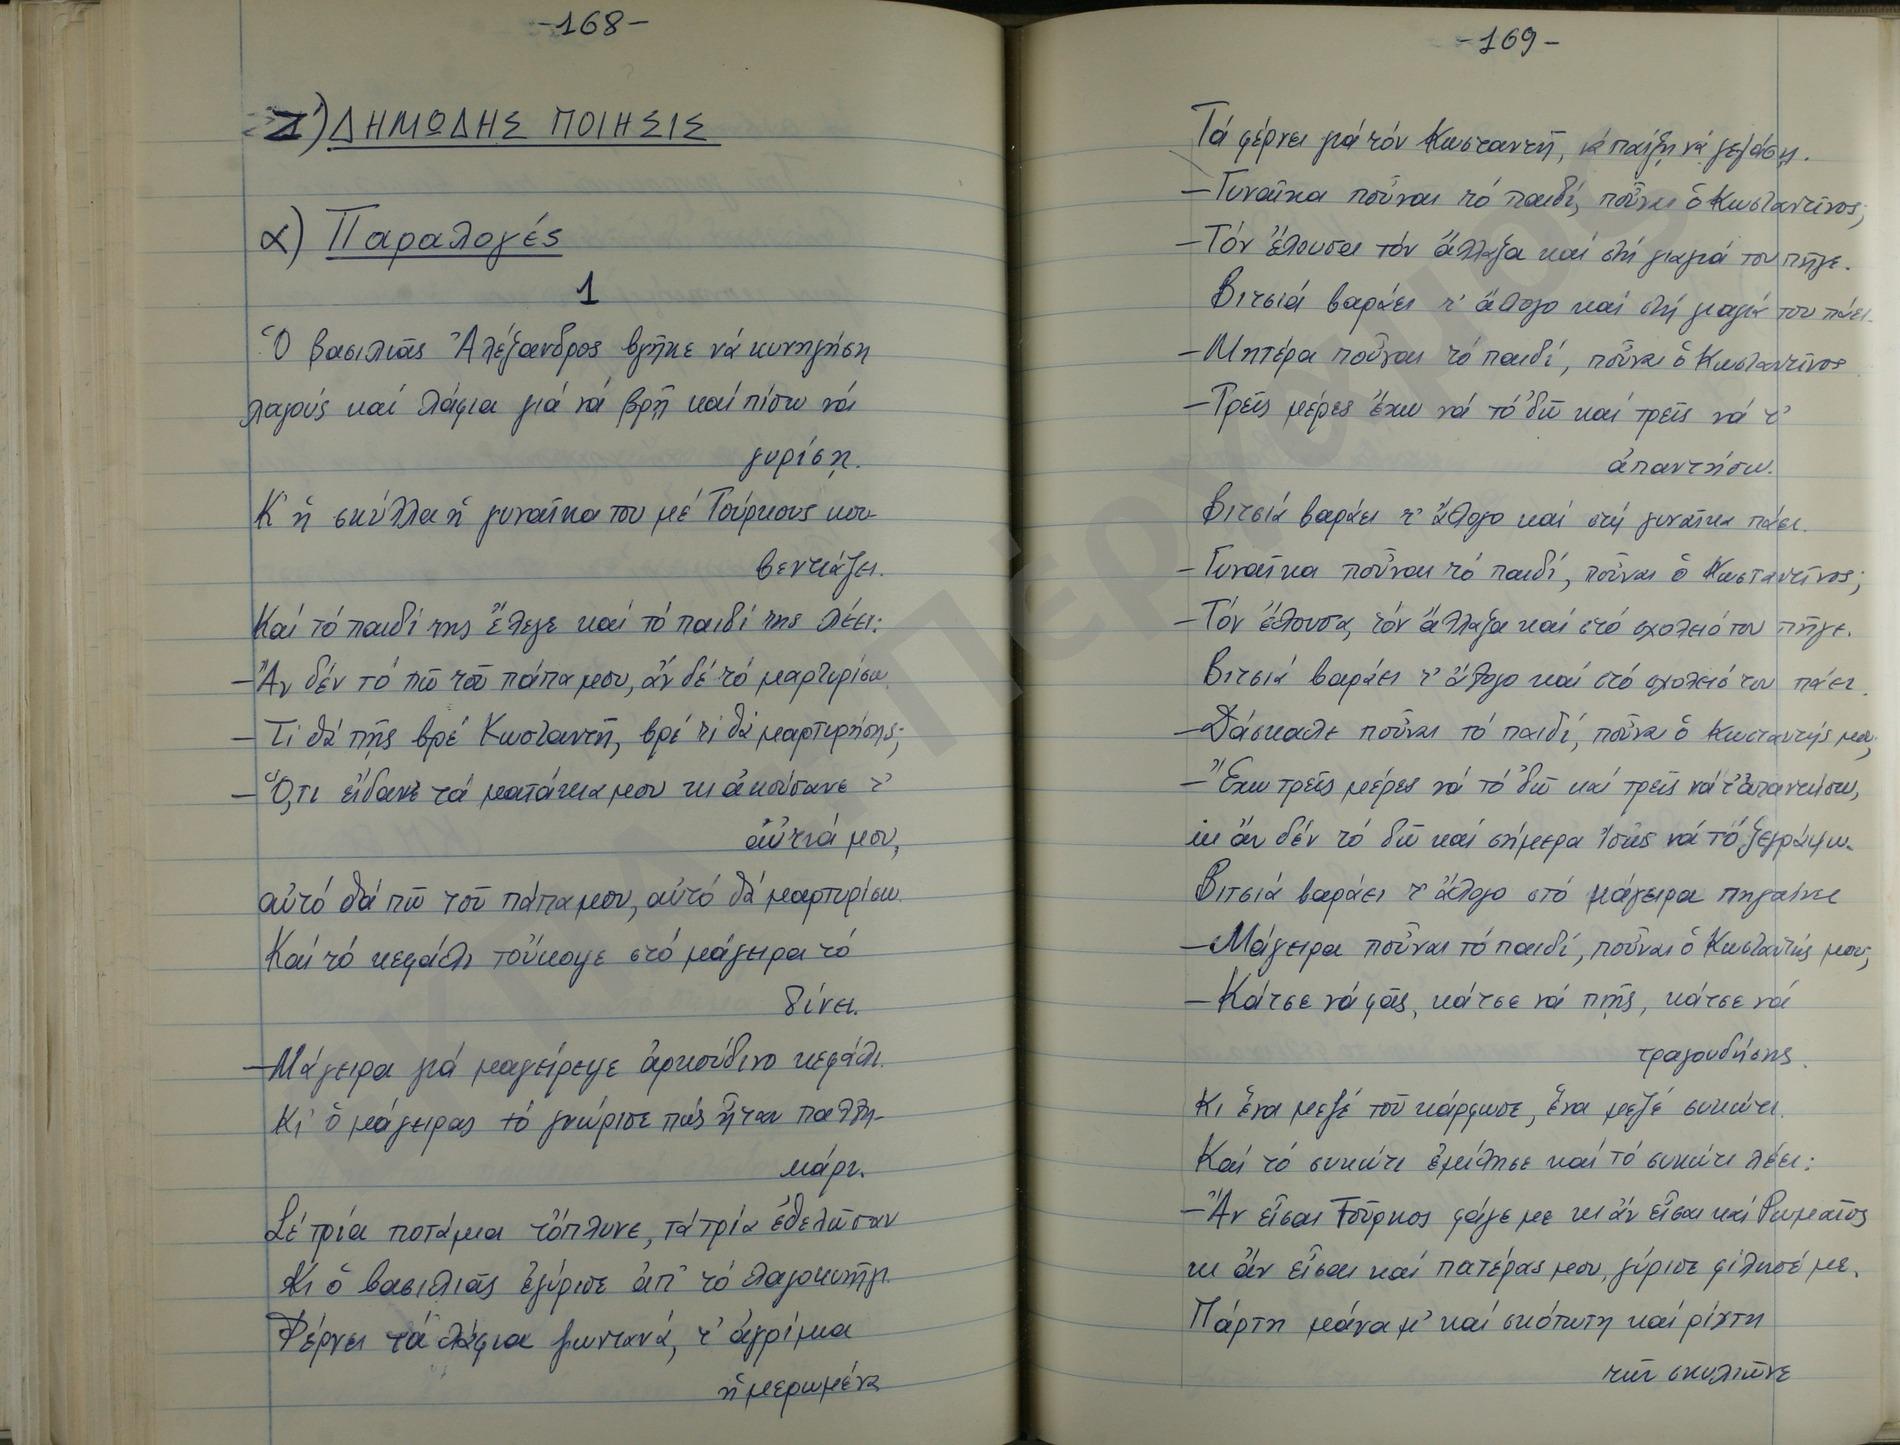 -168-
Ζ') ΔΗΜΩΔΗΣ ΠΟΙΗΣΙΣ
α) Παραλογές
1
Ὁ βασιλιᾶς Ἀλέξανδρος βγῆκε νά κυνηγήση
λαγούς καί λάφια γιά νά βρῆ καί πίσω νά
γυρίσῃ.
Κ' ἡ σκύλλα ἡ γυναῖκα του μέ Τούρκους κου-
βεντιάζει.
Καί τό παιδί της ἔλεγε καί τό παιδί της λέει:
-Ἄν δέν τό πῶ τοῦ πάπα μου, ἄν δέ τό μαρτυρίσω.
- Τί θά πῆς βρέ Κωσταντῆ, βρέ τί θά μαρτυρήσης;
- Ὅ,τι εἴδανε τά ματάκια μου κι ἀκούσανε τ'
αὐτιά μου,
αὐτό θά πῶ τοῦ πάπα μου, αὐτό θά μαρτυρίσω.
Καί τό κεφάλι τοὔκοψε στό μάγειρα τό
δίνει.
-Μάγειρα γιά μαγείρεψε ἀρκούδινο κεφάλι.
Κι' ὁ μάγειρας τό γνώρισε πώς ἦταν παλλη-
κάρι.
Σέ τρία ποτάμια τὄπλυνε, τά τρία ἐθελῶσαν
Κι ὁ βασιλιᾶς ἐγύρισε ἀπ' τό λαγοκυνῆγι.
Φέρνει τά λάφια ζωντανά, τ' ἀγρίμια
ἡμερωμένα
-169-
Τά φέρνει γιά τόν Κωσταντῆ, νά παίξῃ νά γελάσῃ.
-Γυναῖκα ποὖναι τό παιδί, ποὖναι ὁ Κωσταντῖνος;
-Τόν ἔλουσα τόν ἄλλαξα καί στή γιαγιά του πῆγε.
Βιτσιά βαράει τ' ἄλογο καί στή γιαγιά του πάει.
-Μητέρα ποὖναι τό παιδί, ποὖναι ὁ Κωσταντῖνος
-Τρεῖς μέρες ἔχω νά τό ἰδῶ καί τρεῖς νά τ'
ἀπαντήσω.
Βιτσιά βαράει τ' ἄλογο καί στή γυναῖκα πάει.
-Γυναῖκα ποὖναι τό παιδί, ποὖναι ὁ Κωσταντῖνος;
-Τόν ἔλουσα, τόν ἄλλαξα καί στό σχολειό του πῆγε.
Βιτσιά βαράει τ' ἄλογο καί στό σχολειό του πάει.
-Δάσκαλε ποὖναι τό παιδί, ποὖναι ὁ Κωσταντής μου;
-Ἔχω τρεῖς μέρες νά τό ἰδῶ καί τρεῖς νά τ' ἀπαντήσω,
κι ἄν δέν τό δῶ καί σήμερα νά τό ξεγράψω.
Βιτσιά βαράει τ' ἄλογο στό μάγειρα πηγαίνει
-Μάγειρα ποὖναι τό παιδί, ποὖναι ὁ Κωσταντής μου;
-Κάτσε νά φᾶς, κάτσε νά πιῇς, κάτσε νά
τραγουδήσης.
Κι ἕνα μεζέ τοῦ κάρφωσε, ἕνα μεζέ συκώτι.
Καί τό συκώτι ἐμίλησε καί τό συκώτι λέει:
-Ἄν εἶσαι Τοῦρκος φάγε με κι ἄν εἶσαι καί Ρωμαῖος
κι ἄν εἶσαι καί πατέρας μου, γύρισε φίλησέ με.
Πάρτη μάνα μ' καί σκότωτη καί ρίχτη
τῶν σκυλιῶνε